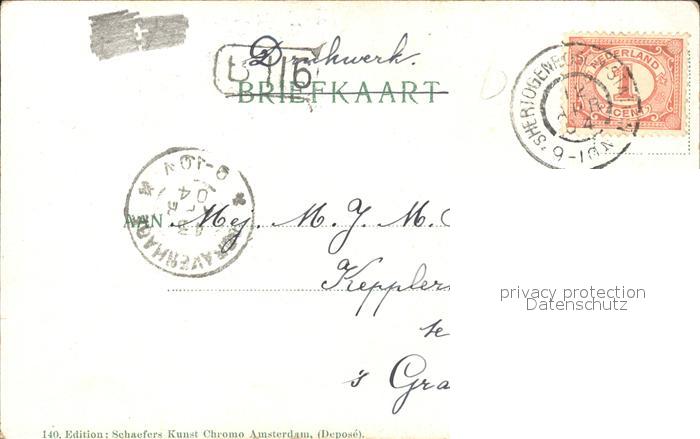 Drukwerk.
BRIEFKAART
NEDERLAND
1
CENT
'SHERTOGENBOSCH
9-10N
'S GRAVENHAGE
9-10V
04
AAN Mej. M. J. M.
Kepplers
te
's Gra
privacy protection
Datenschutz
140. Edition: Schaefers Kunst Chromo Amsterdam, (Deposé).